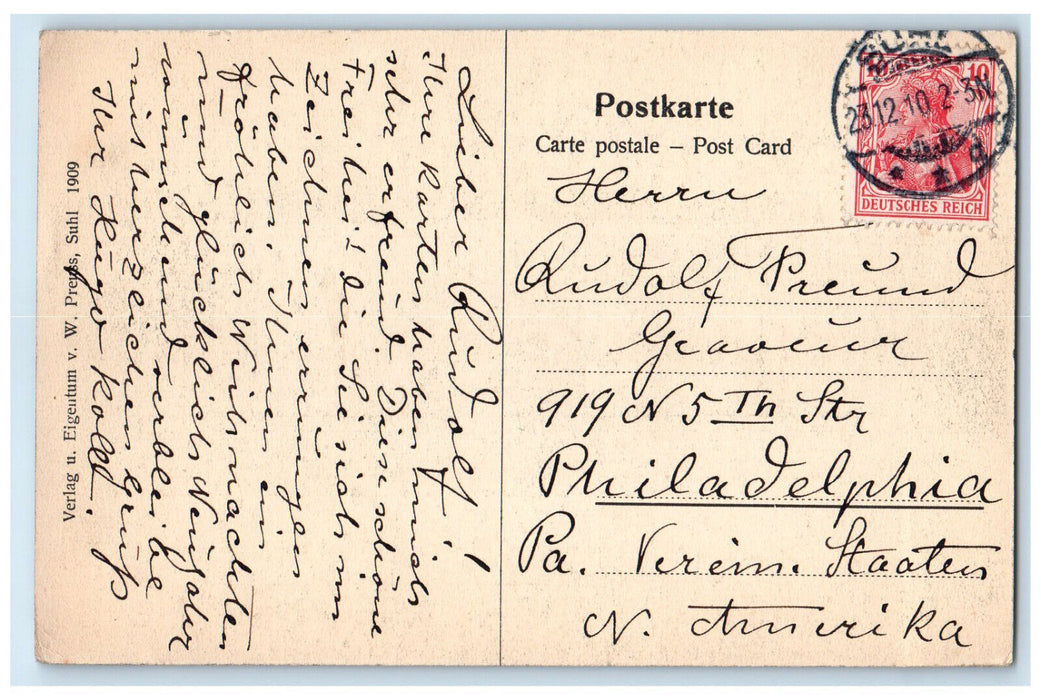 Lieber Rudolf!
Ihre Karten haben mich
sehr erfreud. Diese schöne
Freiheid die Sie sich im
Zeichnen erringen
haben. Ihnen ein
Fröhlich Weihnachten
und glücklich Neujahr
wünscht und verbleibe
mit herzlichen Gruß
Ihr Hugo Kolb.
Verlag u. Eigentum v. W. Preuss, Suhl 1909
Postkarte
Carte postale – Post Card
SUHL
23.12.10. 2-3N.
10
DEUTSCHES REICH
Herrn
Rudolf Freund
Graveur
919 N 5 Th Str
Philadelphia
Pa. Verein. Staaten
N. Amerika